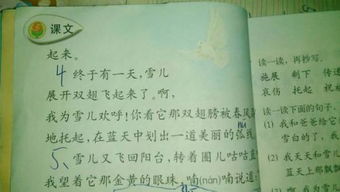 课文
起来。
4 终于有一天，雪儿
展开双翅飞起来了。啊，
我为雪儿欢呼！你看它那双翅膀被春风
地托起，在蓝天中划出一道美丽的弧线
5、雪儿又飞回阳台，转着圈儿咕咕
我望着它那金黄的眼珠，喃(nán)喃说道
读一读，再抄写。
施展 剩下 传
哀伤 托起 祝
读一读下面的句子，
(1) 我和爸爸给它
雪白的了，我
(2) 我天天和雪儿
蓝天上那飘